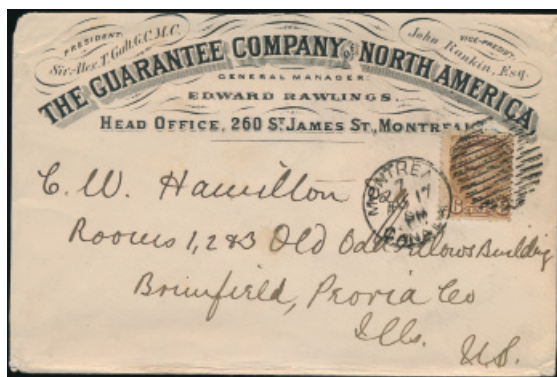 PRESIDENT,
Sir Alex. T. Galt. G.C.M.G.
VICE-PRESDT.
John Rankin, Esq.
THE GUARANTEE COMPANY OF NORTH AMERICA,
GENERAL MANAGER:
EDWARD RAWLINGS.
HEAD OFFICE, 260 ST. JAMES ST., MONTREAL
C. W. Hamilton
Rooms 1, 2 & 3 Old Odd Fellows Building
Brimfield, Peoria Co
Ills.
U.S.
MONTREAL
7
17
PM
CANADA